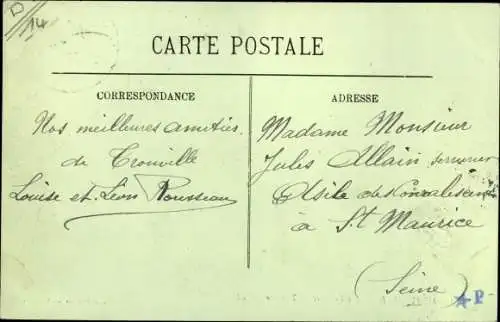 D
14
CARTE POSTALE
CORRESPONDANCE
Nos meilleures amitiés
de Trouville
Louise et Léon Rousseau
ADRESSE
Madame Monsieur
Jules Allain
Asile de Convalescents
à St Maurice
(Seine)
P